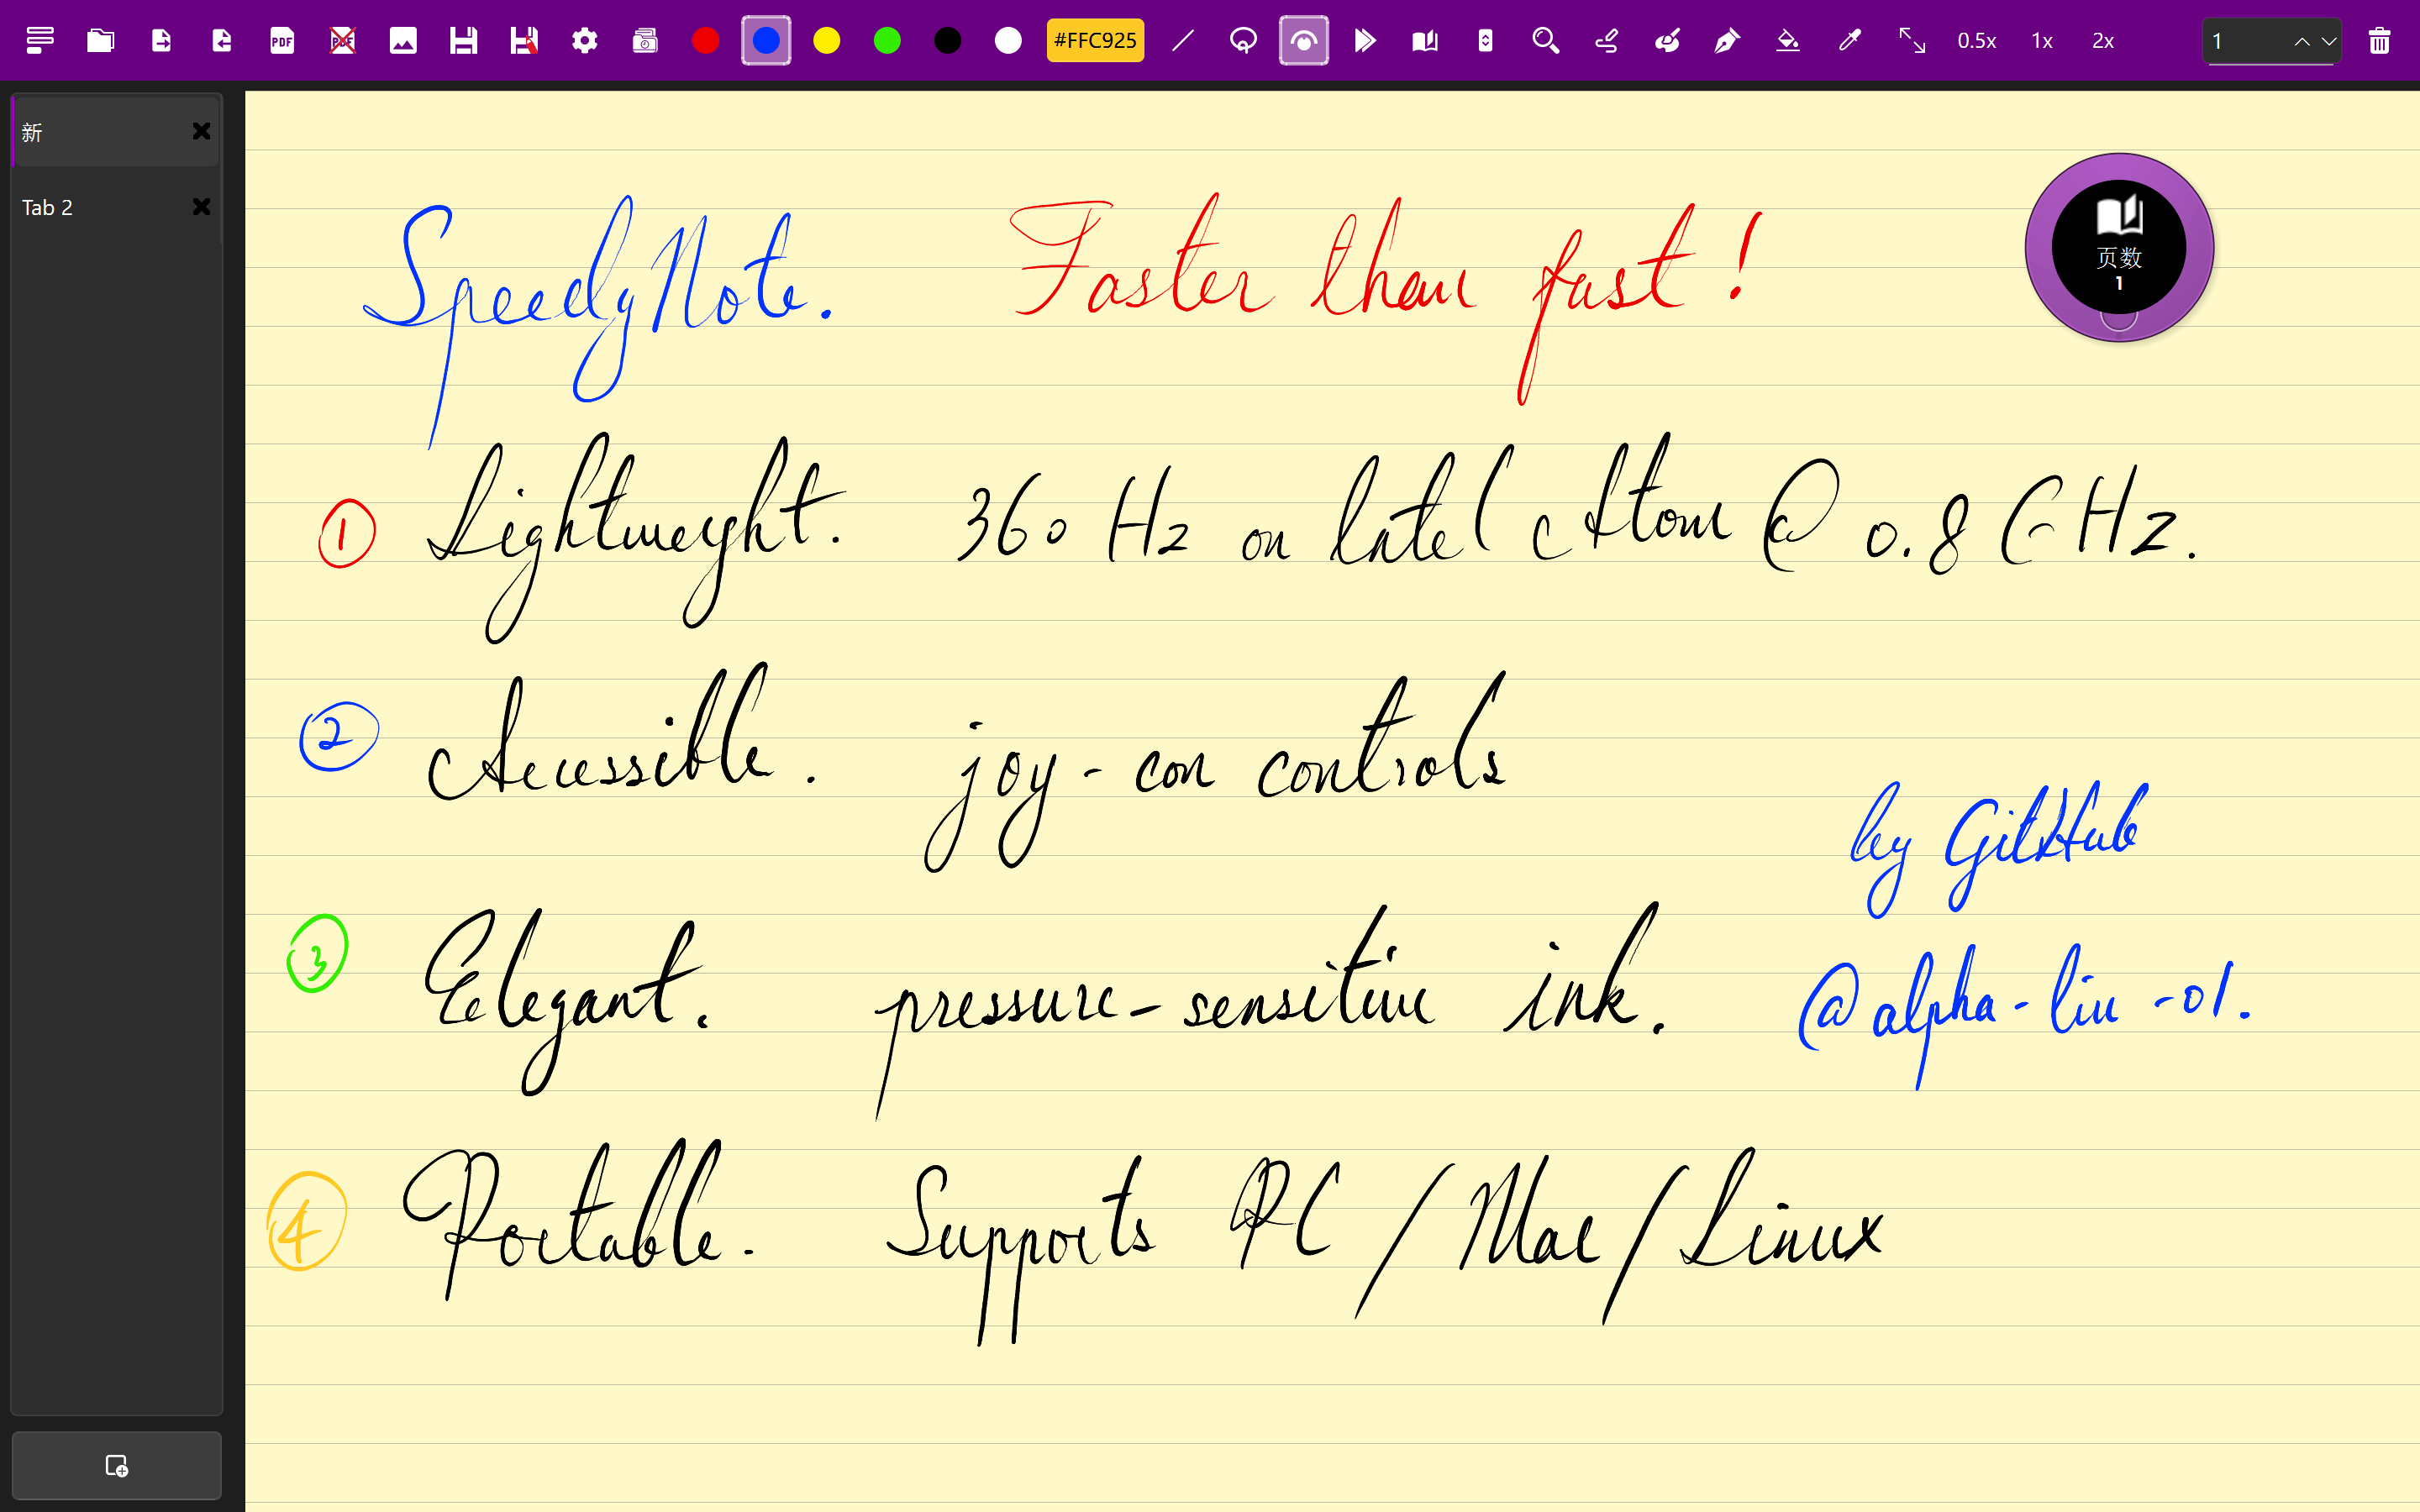 PDF
PDF
#FFC925
0.5x
1x
2x
1
新
Tab 2
页数
1
SpeedyNote. Faster than fast!
① Lightweight. 360 Hz on Intel Atom @ 0.8 GHz.
② Accessible. joy-con controls
by GitHub
③ Elegant. pressure-sensitive ink.
@alpha-liu-01.
④ Portable. Supports PC/Mac/Linux